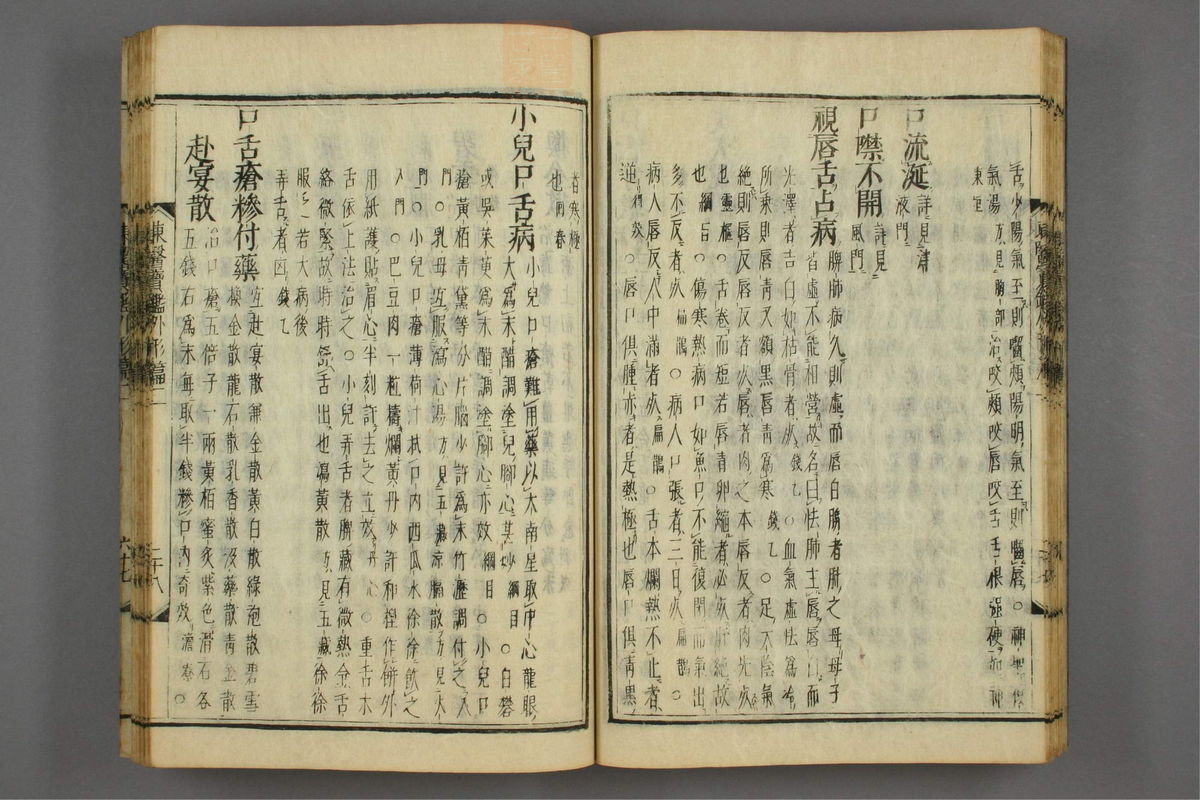 舌少陽氣至則嚙頰陽明氣至則嚙唇○神聖復
氣湯方見胸部治咬頰咬唇咬舌舌根強硬如神
東垣
口流涎詳見津液門
口噤不開詳見風門
視唇舌占病脾肺病久則虛而唇白脾者肺之母母子
皆虛不能相營故名曰怯肺主唇唇白而
光澤者吉白如枯骨者死錢乙○血氣虛怯爲冷
所乘則唇靑又額黑唇靑爲寒錢乙○足厥陰氣
絶則唇反唇反者死唇者肉之本唇反者肉先死
也靈樞○舌卷而短若唇靑卵縮者必死肝絶故
也綱目○傷寒熱病口如魚口不能復閉而氣出
多不反者死扁鵲○病人口張者三日死扁鵲○
病人唇反人中滿者死扁鵲○舌本爛熱不止者
逆得效○唇口俱腫赤者是熱極也唇口俱靑黑
者寒極
也回春
小兒口舌病小兒口瘡難用藥以大南星取中心龍眼
大爲末醋調塗兒脚心甚妙綱目○白礬
或吳茱萸爲末醋調塗脚心亦效綱目○小兒口
瘡黃栢靑黛等分片腦少許爲末竹瀝調付之入
門○乳母宜服瀉心湯方見五臟凉膈散方見火
門○小兒口瘡薄荷汁拭口內西瓜水徐徐飮之
入門○巴豆肉一粒擣爛黃丹少許和揑作餠外
用紙護貼眉心半刻許去之立效丹心○重舌木
舌依上法治之○小兒弄舌者脾藏有微熱令舌
絡微緊故時時舒舌出也瀉黃散方見五藏徐徐
服之若大病後
弄舌者凶錢乙
口舌瘡糝付藥宜赴宴散兼金散黃白散綠袍散碧雪
換金散龍石散乳香散沒藥散靑金散
赴宴散治口瘡五倍子一兩黃栢蜜炙紫色滑石各
五錢右爲末每取半錢糝口內奇效澹寮○
東醫寶鑑外形篇二
二十八